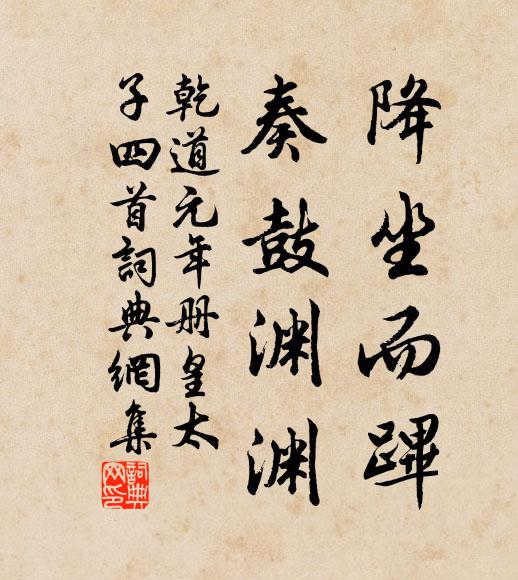 降坐而蹕
奏鼓渊渊
乾道元年册皇太
子四首詞典網集